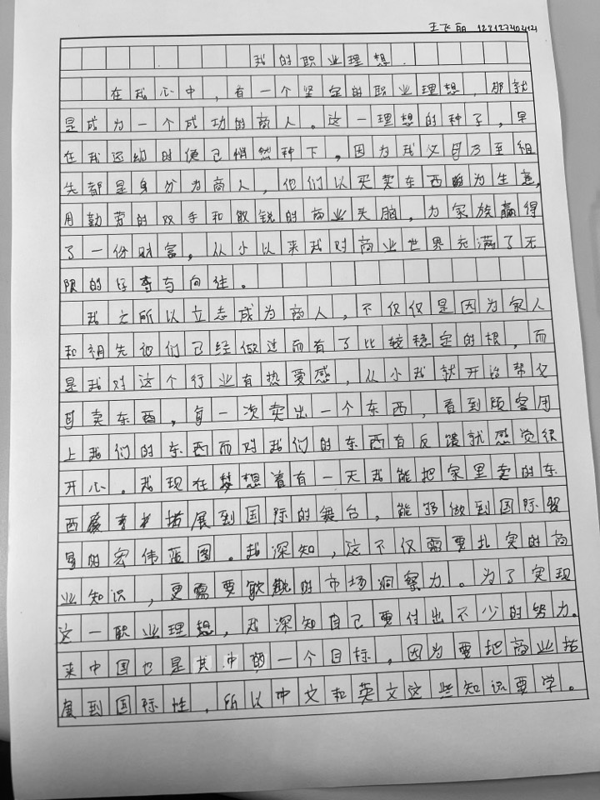 王飞明
我的职业理想.
在我心中，有一个坚定的职业理想，那就
是成为一个成功的商人。这一理想的种子，早
在我还幼时便已悄然种下，因为我父母乃至祖
先都是身分为商人，他们以买卖东西为生意，
用勤劳的双手和敏锐的商业头脑，为家族赢得
了一份财富，从小以来我对商业世界充满了无
限的与向往。
我之所以立志成为商人，不仅仅是因为家人
和祖先他们已经做过而有了比较稳定的根，而
是我对这个行业有热爱感，从小我就开始帮父
母卖东西，每一次卖出一个东西，看到顾客用
上我们的东西而对我们的东西有反馈就感觉很
开心。我现在梦想着有一天我能把家里卖的东
西拓展到国际的舞台，能够做到国际贸
易的宏伟蓝图。我深知，这不仅需要扎实的商
业知识，更需要敏锐的市场洞察力。为了实现
这一职业理想，我深知自己要付出不少的努力.
来中国也是其中的一个目标，因为要把商业拓
展到国际性，所以中文和英文这些知识要学。